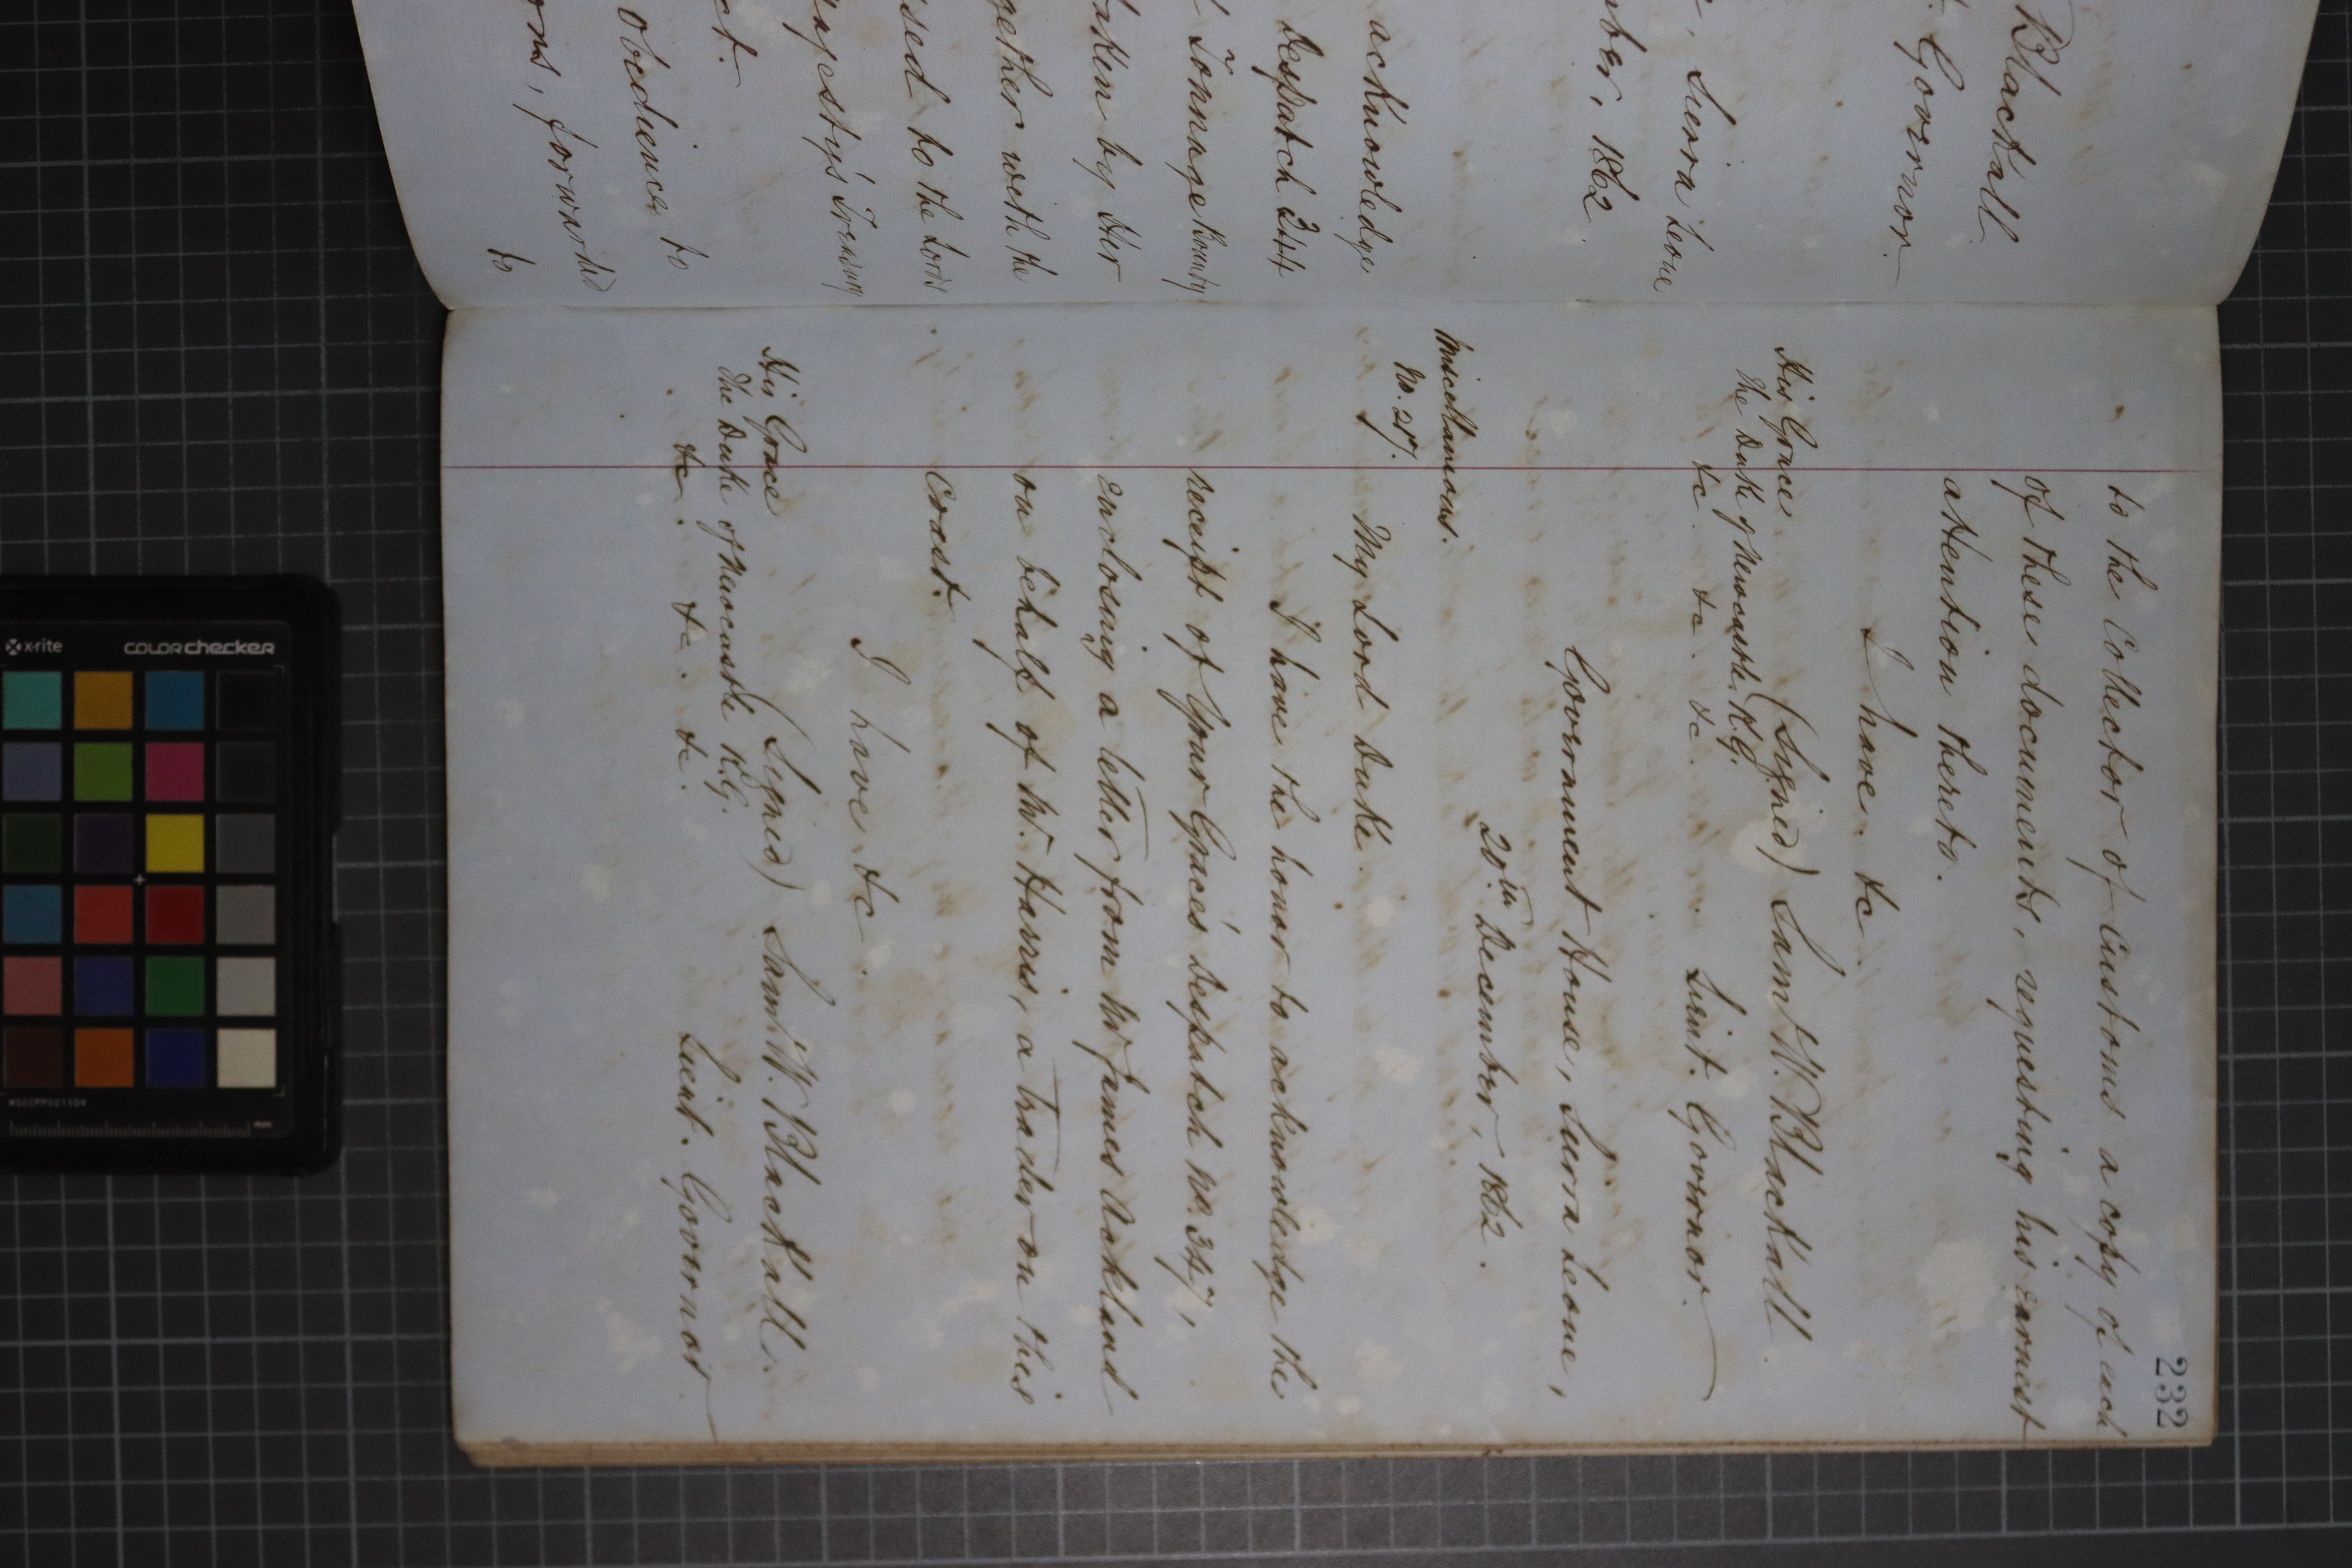 Blackall
t. Governor.
, Sierra Leone
mber, 1862
acknowledge
Despatch 344
Tonnage Bounty
taken by Her
gether with the
ssed to the Lords
Majesty's Treasury
ct.
obedience to
ons, forwarded
to
232
to the Collector of Customs a copy of each
of these documents, requesting his earnest
attention thereto.
I have. &c.
His Grace (Signed) Sam W. Blackall
The Duke of Newcastle. K.G.
&c. &c. &c. Lieut. Governor.
Government House, Sierra Leone,
20th December, 1862.
Miscellaneous.
No. 217. My Lord Duke.
I have the honor to acknowledge the
receipt of Your Grace's Despatch No. 347,
enclosing a letter from Mr James Ackland
on behalf of Mr. Harris, a Trader on this
Coast.
I have. &c.
His Grace (Signed) Saml. W. Blackall.
The Duke of Newcastle K.G.
&c. &c. &c. Lieut. Governor.
x-rite colorchecker
MSCCPPCC1109
mm